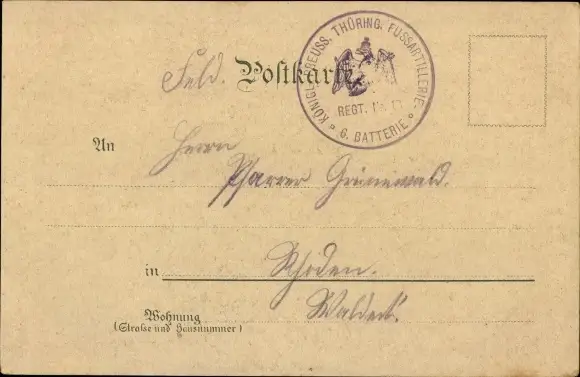 KÖNIGL. PREUSS. THÜRING. FUSSARTILLERIE
REGT.
6. BATTERIE
Feld. Postkarte
An Herrn
Pfarrer Grünewald.
in Rhoden.
Wohnung Waldeck.
(Straße und Hausnummer)